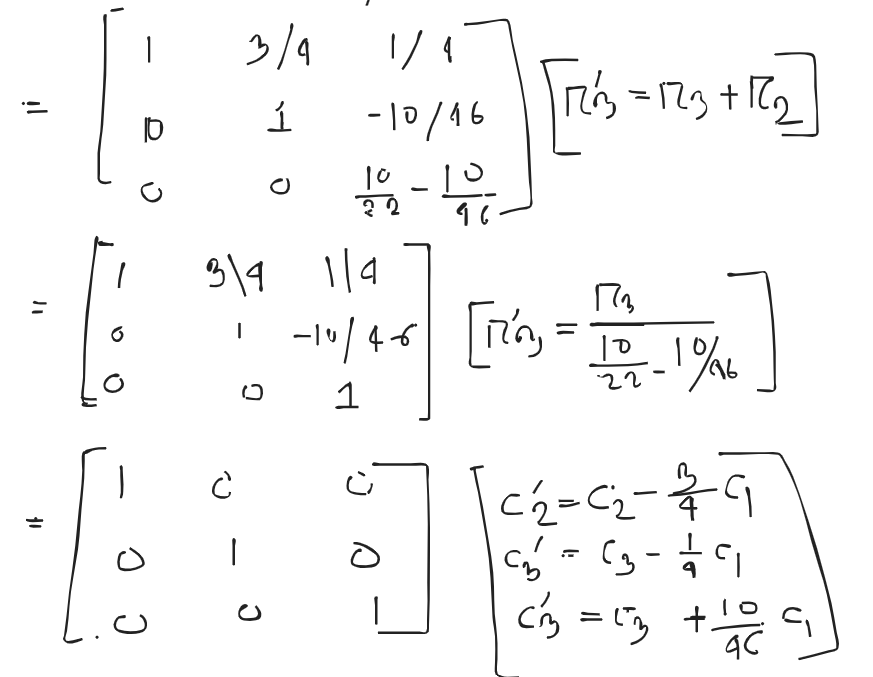 = [ 1 3/4 1/4
0 1 -10/46
0 0 10/22 - 10/46 ] [r₃′ = r₃ + r₂]
= [ 1 3\4 1|4
0 1 -10/46
0 0 1 ] [r₃′ = r₃ / (10/22 - 10/46)]
= [ 1 0 0
0 1 0
0 0 1 ] [c₂′ = c₂ - 3/4 c₁
c₃′ = c₃ - 1/4 c₁
c₃′ = c₃ + 10/46 c₁]